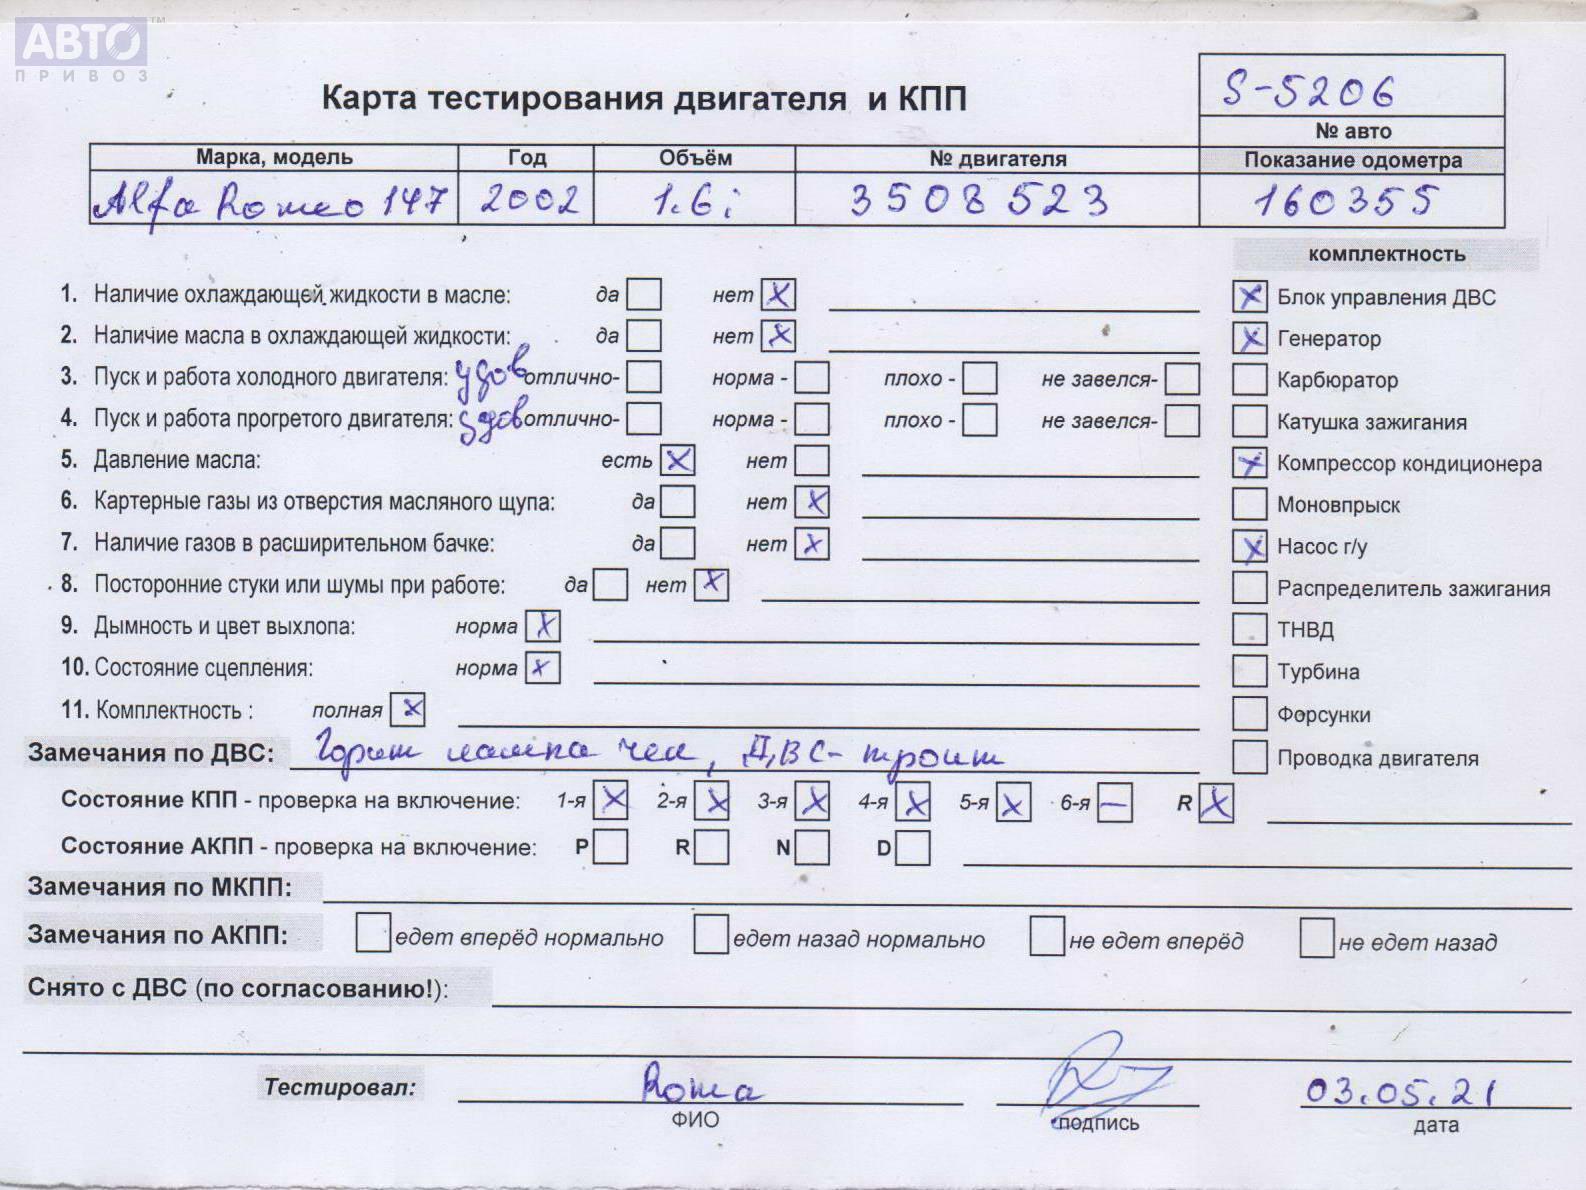 АВТО™
ПРИВОЗ
S-5206
Карта тестирования двигателя и КПП
№ авто
Марка, модель Год Объём № двигателя Показание одометра
Alfa Romeo 147 2002 1.6i 3508523 160355
комплектность
1. Наличие охлаждающей жидкости в масле: да нет X
X Блок управления ДВС
2. Наличие масла в охлаждающей жидкости: да нет X
X Генератор
3. Пуск и работа холодного двигателя: удов отлично- норма - плохо - не завелся-
Карбюратор
4. Пуск и работа прогретого двигателя: удов отлично- норма - плохо - не завелся-
Катушка зажигания
5. Давление масла: есть X нет
X Компрессор кондиционера
6. Картерные газы из отверстия масляного щупа: да нет X
Моновпрыск
7. Наличие газов в расширительном бачке: да нет X
X Насос г/у
8. Посторонние стуки или шумы при работе: да нет X
Распределитель зажигания
9. Дымность и цвет выхлопа: норма X
ТНВД
10. Состояние сцепления: норма X
Турбина
11. Комплектность : полная X
Форсунки
Замечания по ДВС: Горит лампа чек, ДВС- троит
Проводка двигателя
Состояние КПП - проверка на включение: 1-я X 2-я X 3-я X 4-я X 5-я X 6-я — R X
Состояние АКПП - проверка на включение: P R N D
Замечания по МКПП:
Замечания по АКПП: едет вперёд нормально едет назад нормально не едет вперёд не едет назад
Снято с ДВС (по согласованию!):
Тестировал: Roma 03.05.21
ФИО подпись дата